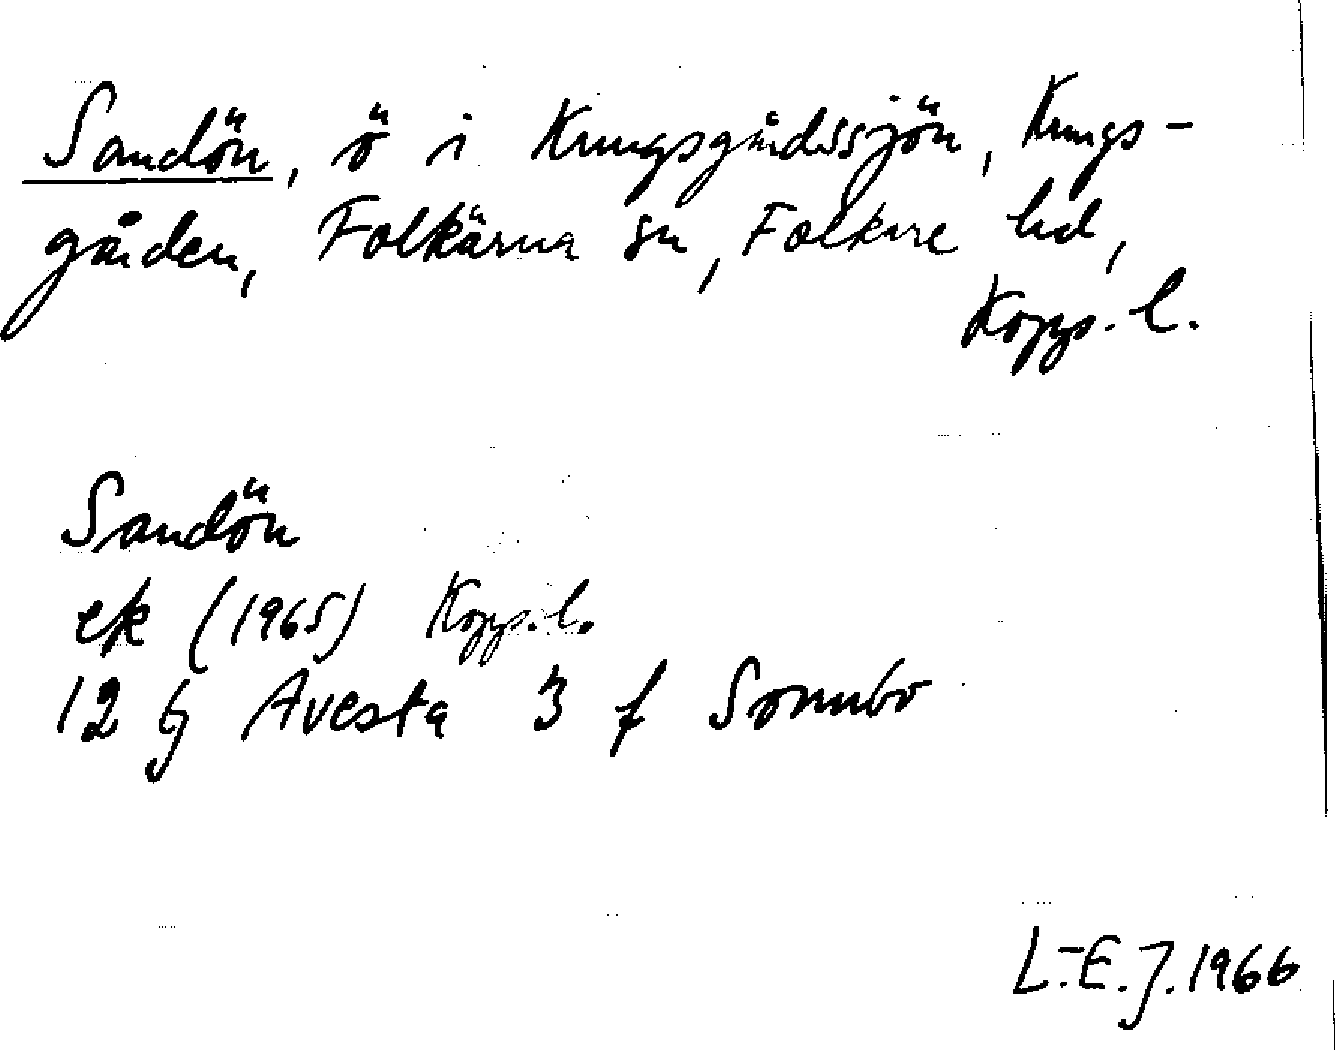 Sandön, ö i Kungsgårdssjön, Kungs-
gården, Folkärna sn, Folkare hd,
Kopp. l.
Sandön
ek (1965) Kopp. l.
12 G Avesta 3 f Sonnbo
L.-E. J. 1966